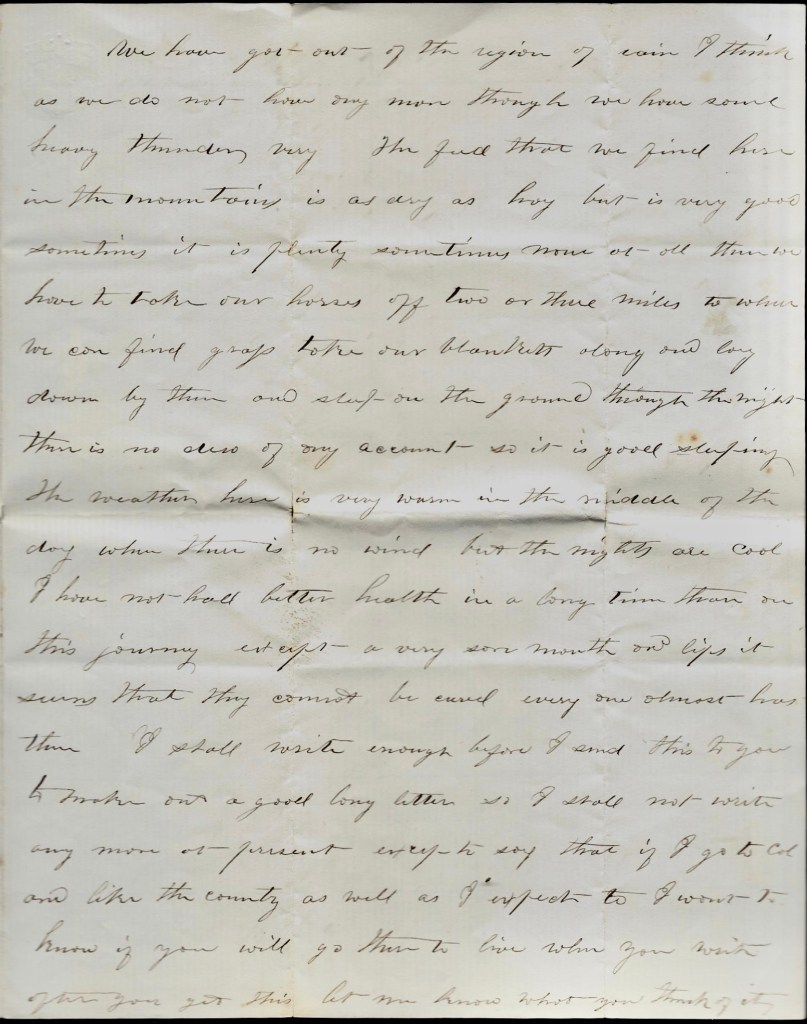 We have got out of the region of rain I think
as we do not have any more though we have some
heavy thunder, very The feed that we find here
in the mountains is as dry as hay but is very good
sometimes it is plenty sometimes none at all then we
have to take our horses off two or three miles to where
we can find grass take our blankets along and lay
down by them and sleep on the ground through the night
there is no dew of any account so it is good sleeping
The weather here is very warm in the middle of the
day when there is no wind but the nights are cool
I have not had better health in a long time than on
this journey except a very sore mouth and lips it
seems that they cannot be cured every one almost has
them I shall write enough before I send this to you
to make out a good long letter so I shall not write
any more at present except to say that if I go to Cal
and like the county as well as I expect to I want to
know if you will go there to live when you write
after you get this let me know what you think of it,